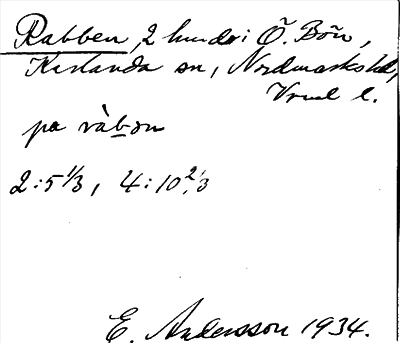 Rabben, 2 hmdr i Ö. Bön,
Karlanda sn, Nordmarks hd,
Vrml l.
på ràbən
2:5 1/3, 4:10 2/3
E. Andersson 1934.